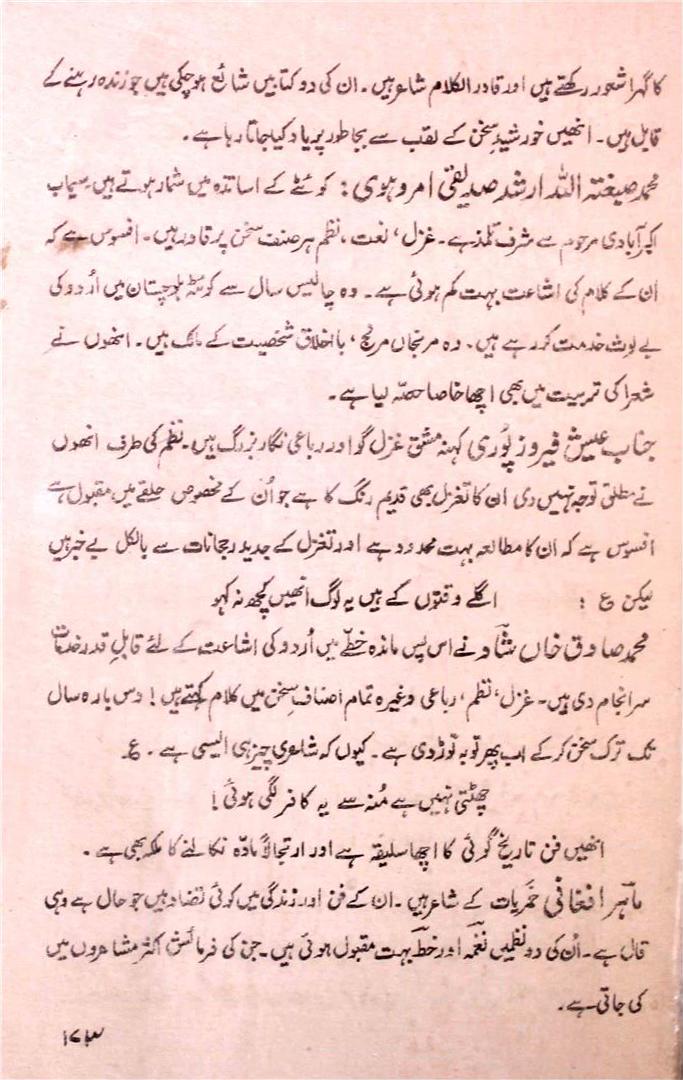 کا گہرا شعور رکھتے ہیں اور قادر الکلام شاعر ہیں۔ ان کی دو کتابیں شائع ہو چکی ہیں جو زندہ رہنے کے
قابل ہیں۔ انھیں خورشیدِ سخن کے لقب سے بجا طور پر یاد کیا جاتا رہا ہے۔
محمد صبغتہ اللہ ارشد صدیقی امروہوی : کوئٹے کے اساتذہ میں شمار ہوتے ہیں۔ سیماب
اکبرآبادی مرحوم سے شرف تلمذ ہے۔ غزل، نعت، نظم ہر صنف سخن پر قادر ہیں۔ افسوس ہے کہ
اُن کے کلام کی اشاعت بہت کم ہوئی ہے۔ وہ چالیس سال سے کوئٹہ بلوچستان میں اُردو کی
بے لوث خدمت کر رہے ہیں۔ وہ مرنجاں مرنج، با اخلاق شخصیت کے مالک ہیں۔ انھوں نے
شعرا کی تربیت میں بھی اچھا خاصا حصّہ لیا ہے۔
جناب عیش فیروز پوری کہنہ مشق غزل گو اور رباعی نگار بزرگ ہیں۔ نظم کی طرف انھوں
نے مطلق توجہ نہیں دی ان کا تغزل بھی قدیم رنگ کا ہے جو اُن کے مخصوص حلقے میں مقبول ہے
افسوس ہے کہ ان کا مطالعہ بہت محدود ہے اور تغزل کے جدید رجحانات سے بالکل بے خبر ہیں
لیکن ع : اگلے وقتوں کے ہیں یہ لوگ انھیں کچھ نہ کہو
محمد صادق خاں شاد نے اس پس ماندہ خطّے میں اُردو کی اشاعت کے لئے قابلِ قدر خدمات
سرانجام دی ہیں۔ غزل، نظم، رباعی وغیرہ تمام اصنافِ سخن میں کلام کہتے ہیں! دس بارہ سال
تک ترک سخن کر کے اب پھر توبہ توڑ دی ہے۔ کیوں کہ شاعری چیز ہی ایسی ہے۔ ع
چھٹتی نہیں ہے مُنہ سے یہ کافر لگی ہوئی!
انھیں فن تاریخ گوئی کا اچھا سلیقہ ہے اور ارتجالاً مادّہ نکالنے کا ملکہ بھی ہے۔
ماہر افغانی خمریات کے شاعر ہیں۔ ان کے فن اور زندگی میں کوئی تضاد نہیں جو حال ہے وہی
قال ہے۔ اُن کی دو نظمیں نغمہ اور خط بہت مقبول ہوئی ہیں۔ جن کی فرمائش اکثر مشاعروں میں
کی جاتی ہے۔